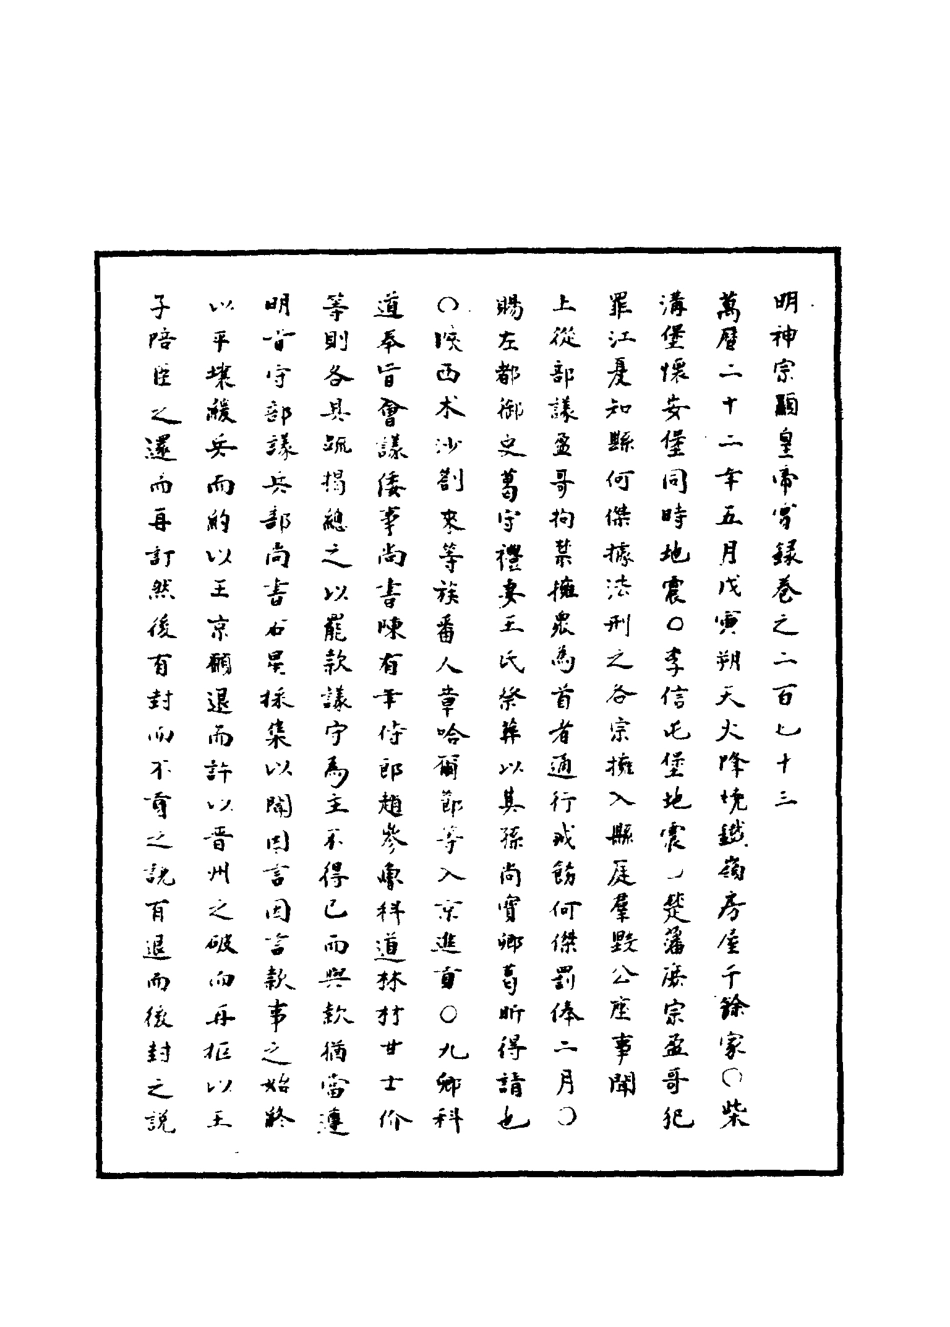 明神宗顯皇帝實錄卷之二百七十三
萬曆二十二年五月戊寅朔天火降燒鐵嶺房屋千餘家○柴
溝堡懷安堡同時地震○李信屯堡地震○楚藩廢宗盈哥犯
罪江夏知縣何傑據法刑之各宗擁入縣庭羣毀公座事聞
上從部議盈哥拘禁擁眾為首者通行戒飭何傑罰俸二月○
賜左都御史葛守禮妻王氏祭葬以其孫尚寶卿葛昕得請也
○陝西木沙劄來等族番人章哈爾節等入京進貢○九卿科
道奉旨會議倭事尚書陳有年侍郎趙參魯科道林材甘士价
等則各具疏揭總之以罷款議守為主不得已而與款猶當遵
明旨守部議兵部尚書石星採集以聞因言因言款事之始終
以平壤緩兵而約以王京願退而許以晋州之破而再拒以王
子陪臣之還而再訂然後有封而不貢之說有退而後封之說